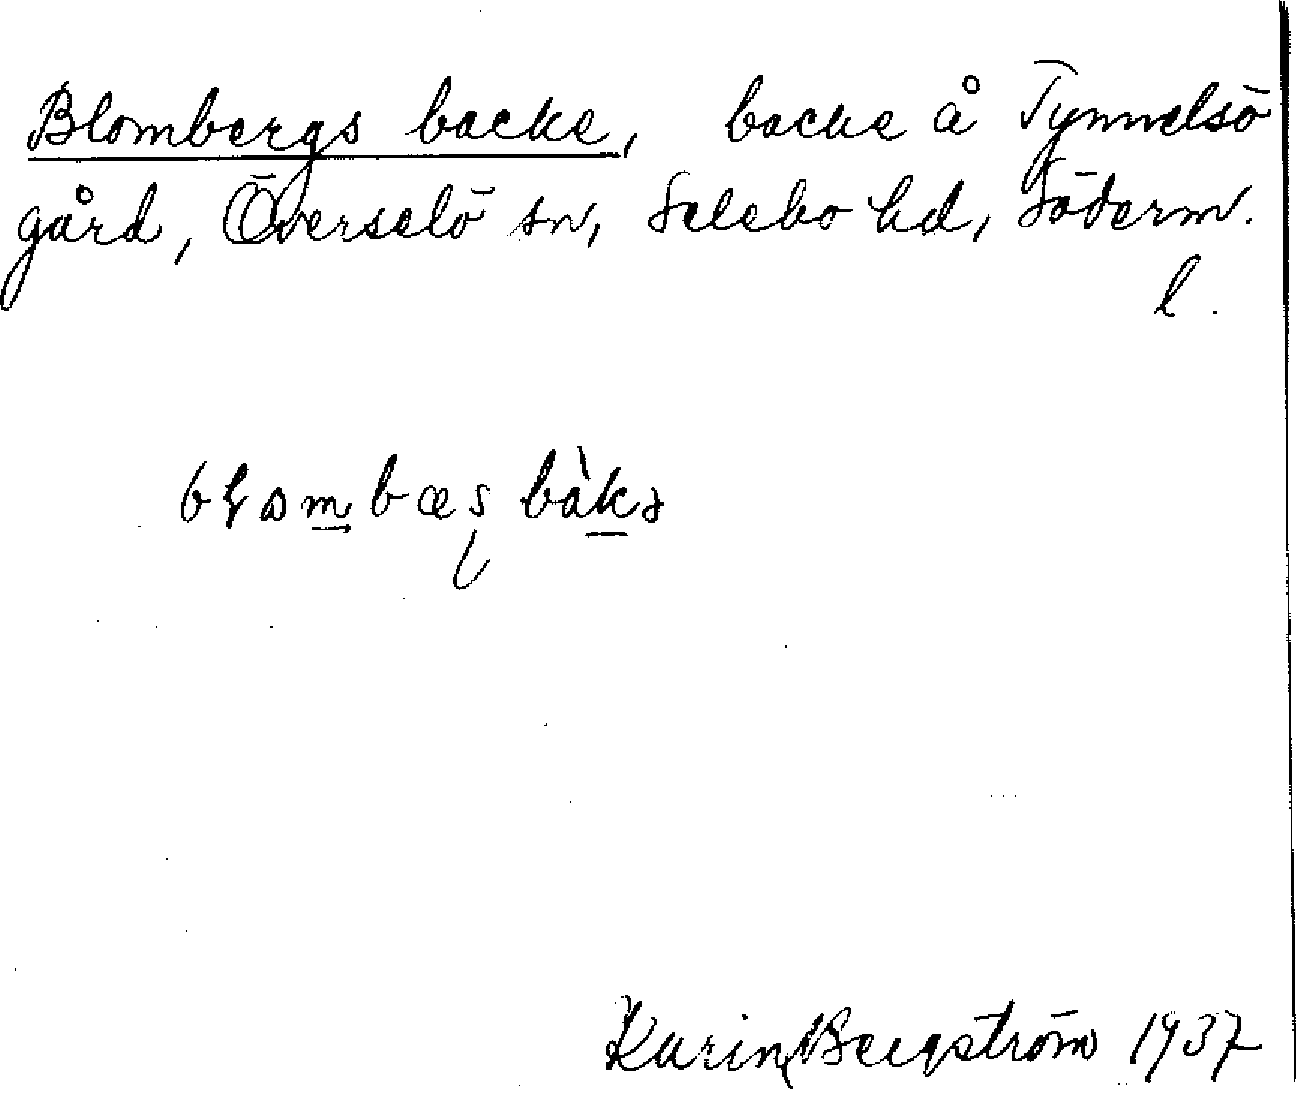 Blombergs backe, backe å Tynnelsö
gård, Överselö sn, Selebo hd, Söderm.
l.
Karin Bergström 1937